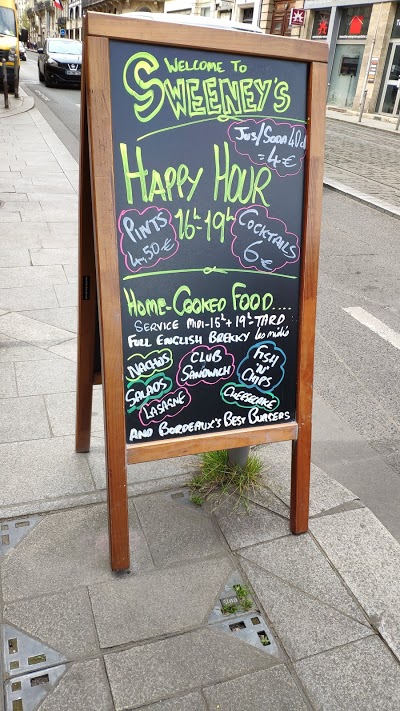 WELCOME TO
SWEENEY'S
JUS/SODA 40cl
= 4€
HAPPY HOUR
16h-19h
PINTS
4,50€
COCKTAILS
6€
HOME-COOKED FOOD....
SERVICE MIDI-15h + 19h-TARD
FULL ENGLISH BREKKY les midis
NACHOS
CLUB
SANDWICH
FISH
'N'
CHIPS
SALADS
LASAGNE
CHEESECAKE
AND BORDEAUX'S BEST BURGERS